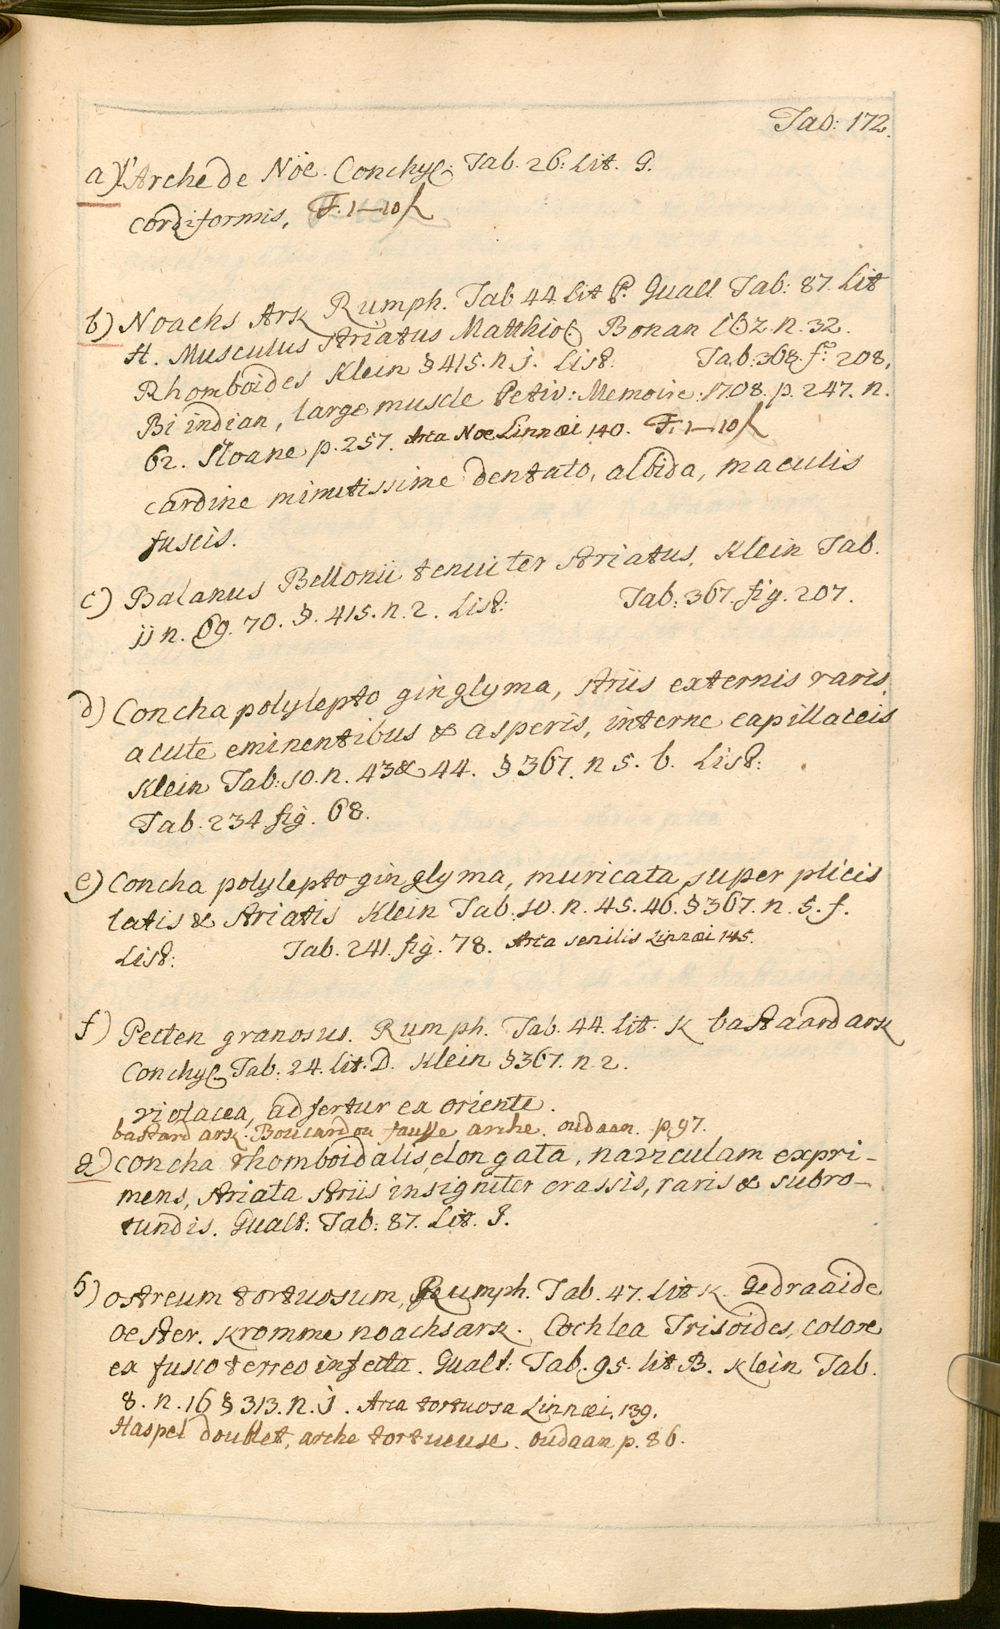 Tab: 172.
a) l'Arche de Nöe. Conchyl: Tab. 26. Lit. G.
cordiformis, F. 1–10
b) Noachs Ark Rumph. Tab 44. Lit P. Guall Tab: 87. Lit
H. Musculus striatus Matthiol. Bonan l62. n. 32.
Rhomboides Klein § 415. n. j. List. Tab: 368. f.º 208,
Bi indian, large muscle Petiv: Memoire: 1708. p. 247. n.
62. Sloane p. 257. Arca Noe Linnæi 140. F. 1–10
cardine minutissime dentato, albida, maculis
fuscis.
c) Balanus Bellonii tenuiter striatus, Klein Tab.
jj n. 69. 70. §. 415. n. 2. List: Tab: 367. fig. 207.
d) Concha polylepto ginglyma, striis externis raris
acute eminentibus & asperis, interne capillaceis
Klein Tab: 10. n. 43 & 44. § 367. n 5. b. List:
Tab. 234 fig. 68.
e) Concha polylepto ginglyma, muricata super plicis
latis & striatis Klein Tab. 10. n. 45. 46. § 367. n. 5. f.
List: Tab. 241. fig. 78. Arca senilis Linnæi 145.
f) Pecten granosus. Rumph. Tab. 44. lit. K bastaard ark
Conchyl. Tab. 24. lit. D. Klein § 367. n. 2.
violacea, adfertur ex oriente.
bastard ark. Boucard ou fausse arche. oudaan. p. 97.
g) Concha rhomboidalis, elongata, naviculam expri-
mens, striata striis insigniter crassis, raris & subro-
tundis. Gualt: Tab: 87. Lit. G.
h) ostreum tortuosum, Rumph. Tab. 47. Lit K. Gedraaide
oester. kromme noachs ark. Cochlea Trisoides, colore
ex fusco terreo infecta. Gualt: Tab. 95. lit B. Klein Tab.
8. n. 16 § 313. n. j. Arca tortuosa Linnæi. 139.
Haspel doublet, arche tortueuse. oudaan p. 86.